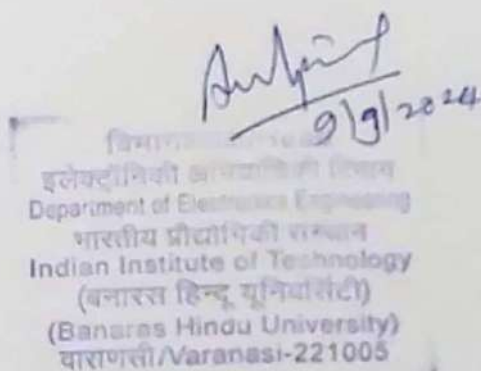 9/9/2024
इलेक्ट्रॉनिकी अभियांत्रिकी विभाग
Department of Electronics Engineering
भारतीय प्रौद्योगिकी संस्थान
Indian Institute of Technology
(बनारस हिन्दू यूनिवर्सिटी)
(Banaras Hindu University)
वाराणसी/Varanasi-221005